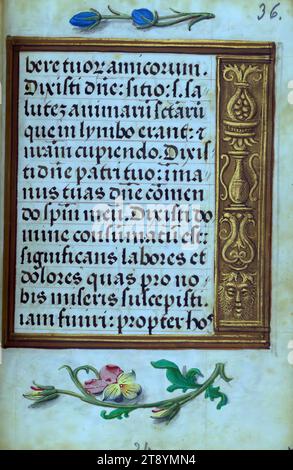 36.
bere tuor amicorum.
Dixisti dñe: sitio: s. sa
lutez animarū sctarū
que in lymbo erant: ⁊
nram cupiendo. Dixis
ti dñe patri tuo: in ma
nus tuas dñe cōmen
do spūm meū. Dixisti do
mine consumatū est:
significans labores et
dolores quas pro no
bis miseris suscepisti
iam finiri: propter hoc
alamy
Image ID: 2T8YMN4
www.alamy.com